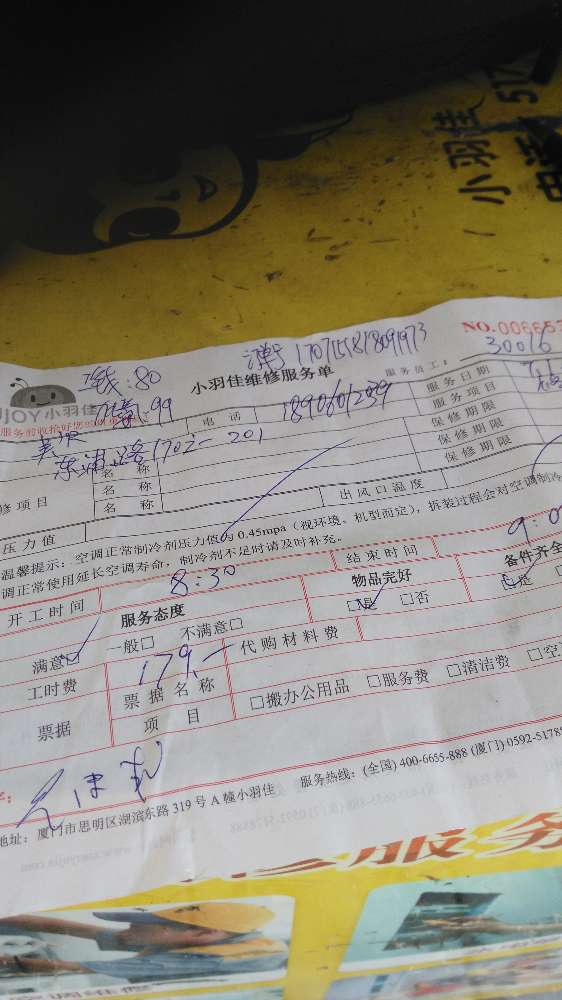 小羽佳
NO.00665
170715181809 1973
30016
钱:80
小羽佳维修服务单
服务员工:
JOY小羽佳
99
电话
服务日期
服务项目
东浦路1702-201
名称
保修期限
名称
保修期限
修项目
名称
保修期限
出风口温度
压力值
温馨提示:空调正常制冷剂压力值为0.45mpa(视环境、机型而定),拆装过程会对空调制冷
调正常使用延长空调寿命,制冷剂不足时请及时补充。
开工时间
8:30
结束时间
服务态度
物品完好
备件齐全
满意□
一般□
不满意□
□是
□否
□是
工时费
179.-
代购材料费
票据
票据名称
项目
□搬办公用品
□服务费
□清洁费
□空
地址:厦门市思明区湖滨东路319号A幢小羽佳
服务热线:(全国)400-6655-888(厦门)0592-5178
服务